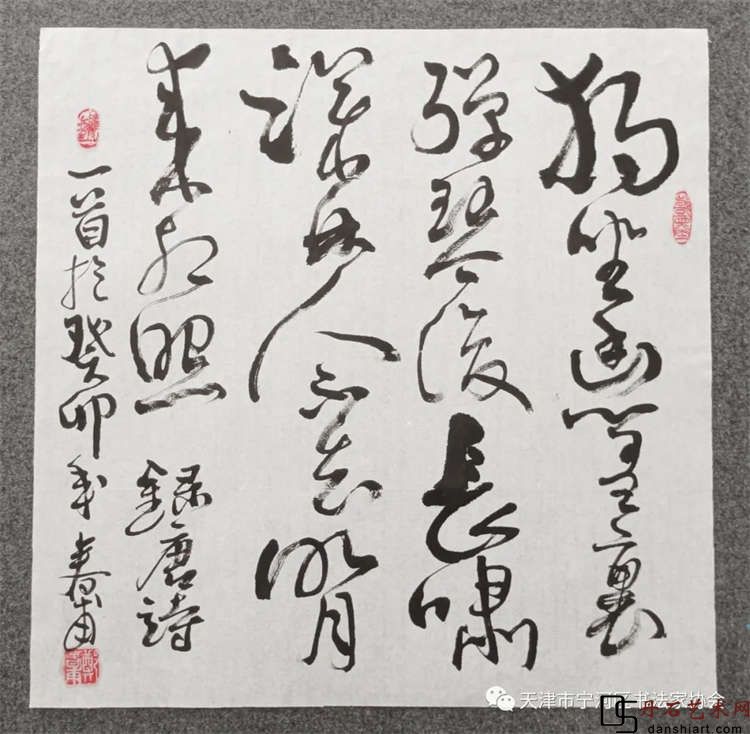 獨坐幽篁裏
彈琴復長嘯
深林人不知明月
来相照 錄唐詩
一首於癸卯年春甫
天津市宁河区书法家协会
丹石艺术网
danshiart.com